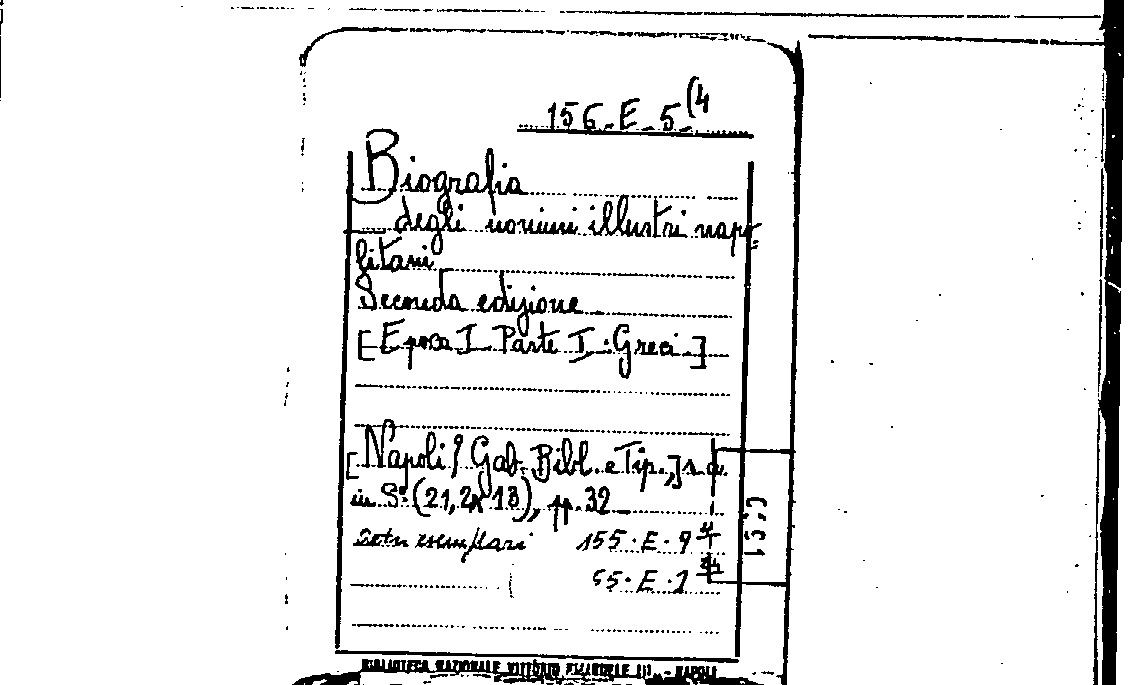 156-E-5(4
Biografia
degli uomini illustri napo=
litani
Seconda edizione
[Epoca I Parte I: Greci.]
[Napoli? Gab. Bibl. e Tip.,] s. a.
in 8º (21,2x13), pp. 32
esemplari 155.E.9
55.E.
BIBLIOTECA NAZIONALE VITTORIO EMANUELE III - NAPOLI